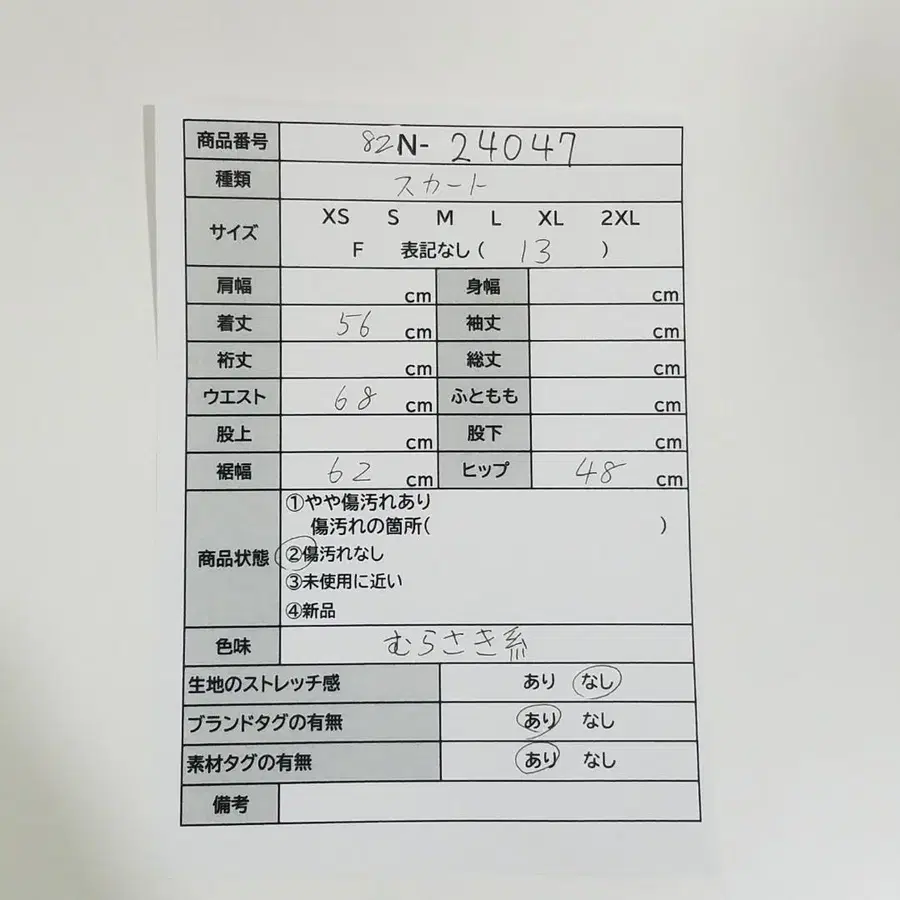 商品番号 82N-24047
種類 スカート
サイズ XS S M L XL 2XL
F 表記なし( 13 )
肩幅 cm 身幅 cm
着丈 56 cm 袖丈 cm
裄丈 cm 総丈 cm
ウエスト 68 cm ふともも cm
股上 cm 股下 cm
裾幅 62 cm ヒップ 48 cm
商品状態 ①やや傷汚れあり
傷汚れの箇所( )
②傷汚れなし
③未使用に近い
④新品
色味 むらさき系
生地のストレッチ感 あり なし
ブランドタグの有無 あり なし
素材タグの有無 あり なし
備考